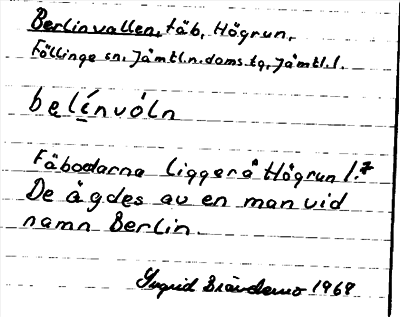 Berlinvallen, fäb, Högrun,
Föllinge sn, Jämtl.n.doms.tg, Jämtl.l.
belínvóln
Fäbodarna ligger å Högrun 1:7
De ägdes av en man vid
namn Berlin.
Ingrid Brändemo 1968